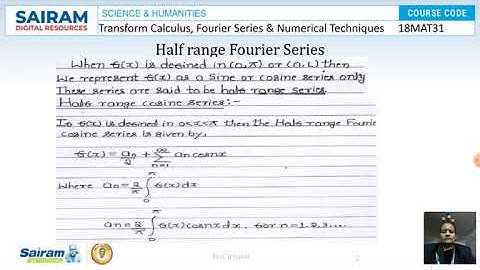 SAIRAM
DIGITAL RESOURCES
SCIENCE & HUMANITIES
COURSE CODE
Transform Calculus, Fourier Series & Numerical Techniques 18MAT31
Half range Fourier Series
When f(x) is defined in (0,π) or (0,L) then
We represent f(x) as a Sine or cosine series only
These series are said to be half range series.
Half range cosine series:-
If f(x) is defined in 0<x<π then the Half range Fourier
cosine series is given by,
f(x) = a₀/2 + ∑ₙ₌₁^∞ an cosnx
Where a₀ = 2/π ∫₀^π f(x)dx
an = 2/π ∫₀^π f(x) cosnx dx. for n=1,2,3,...
Sairam
2